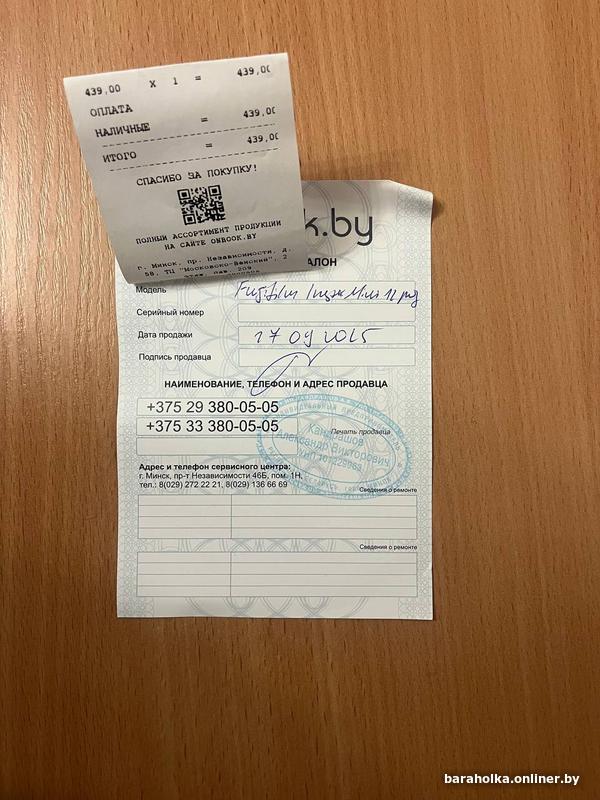 439,00 X 1 = 439,00
ОПЛАТА
НАЛИЧНЫЕ = 439,00
ИТОГО = 439,00
СПАСИБО ЗА ПОКУПКУ!
ПОЛНЫЙ АССОРТИМЕНТ ПРОДУКЦИИ
НА САЙТЕ ONBOOK.BY
Г. Минск, пр. Независимости, д.
58, ТЦ "Московско-Венский", 2
этаж, пав. 209
k.by
АЛОН
Модель Fujifilm Instax Mini 12
Серийный номер
Дата продажи 17 09 2025
Подпись продавца
НАИМЕНОВАНИЕ, ТЕЛЕФОН И АДРЕС ПРОДАВЦА
+375 29 380-05-05
+375 33 380-05-05
Печать продавца
Александр Викторович
Адрес и телефон сервисного центра:
г. Минск, пр-т Независимости 46Б, пом. 1Н,
тел.: 8(029) 272 22 21, 8(029) 136 66 69
Сведения о ремонте
Сведения о ремонте
baraholka.onliner.by